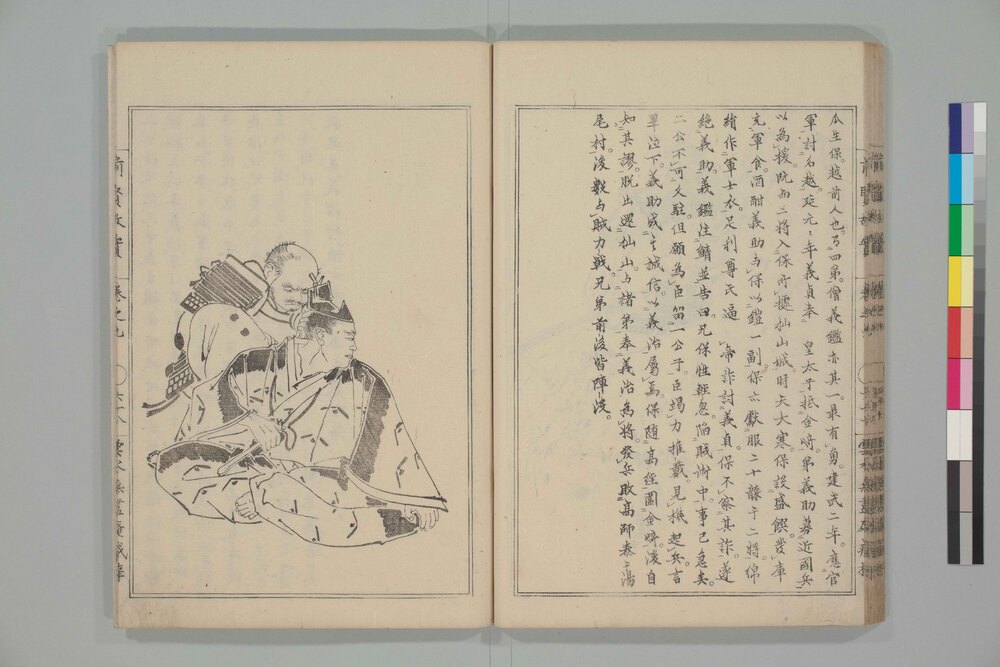 瓜生保。越前人也。有四弟。僧義鑑亦其一。最有勇。建武二年。應官
軍討名越。延元々年義貞奉 皇太子抵金崎。弟義助募近國兵
以為援。既而二將入保所據杣山城。時天大寒。保設盛饌。發庫
充軍食。酒酣義助与保以鎧一副。保亦獻服二十襲于二將。綿
絹作軍士衣。足利尊氏逼 帝詐討義貞。保不察其詐。遂
絶義助。義鑑往鯖並告曰。兄保性輕忽。陷賊術中。事已急矣。
二公不可久駐。但願為臣留一公子。臣竭力推戴。見機起兵。言
畢泣下。義助感其誠信。以義治屬焉。保随高經圍金崎。後自
知其謬。脱出還杣山。与諸弟奉義治為將。發兵敗高師泰。蕩
尾村後戰与賊力戰。兄弟前後皆陣没。
前賢故實 巻之九